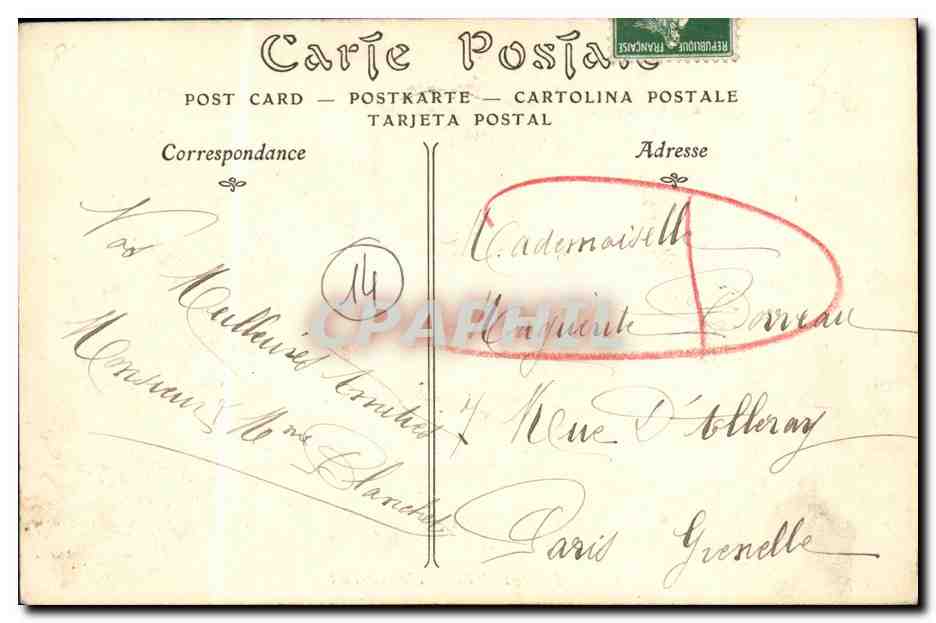 Carte Postale
REPUBLIQUE FRANÇAISE
POST CARD — POSTKARTE — CARTOLINA POSTALE
TARJETA POSTAL
Correspondance
Nos Meilleures Amitiés
Monsieur & Mme Blanchet
14
Adresse
Mademoiselle
Marguerite Borreau
7 Rue D'Alleray
Paris Grenelle
CPAPHIL